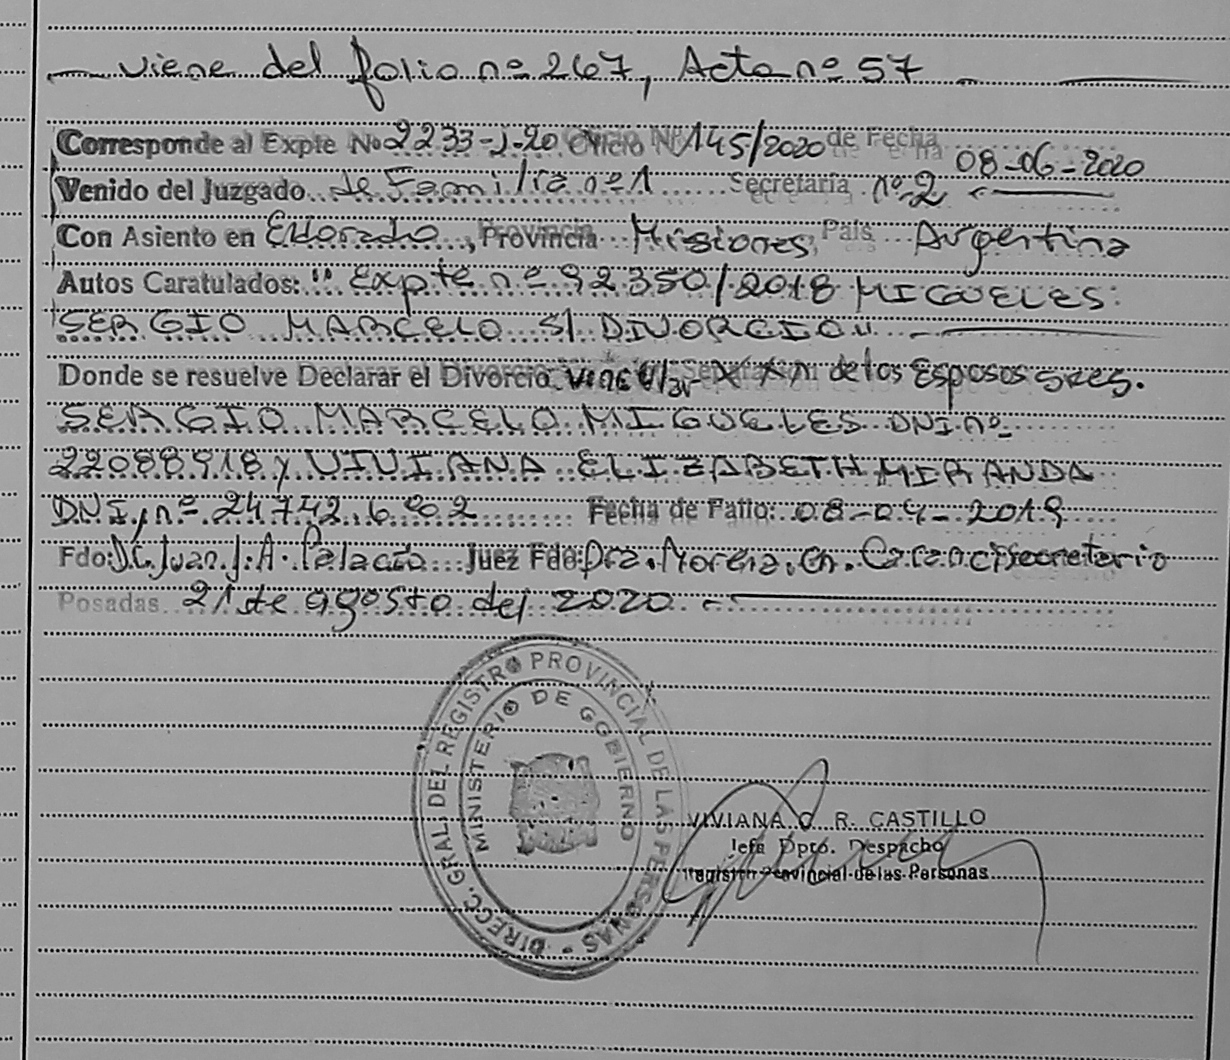 viene del folio nº 267, Acta nº 57
Corresponde al Expte Nº 2233-J-20 Oficio Nº 145/2020 de Fecha 08-06-2020
Venido del Juzgado de Familia nº 1 Secretaría nº 2
Con Asiento en Eldorado, Provincia Misiones, País Argentina
Autos Caratulados: "Expte nº 92350/2018 MIGUELES
SERGIO MARCELO S/ DIVORCIO"
Donde se resuelve Declarar el Divorcio Vincular de los Esposos Sres.
SERGIO MARCELO MIGUELES DNI nº
22088918 y VIVIANA ELIZABETH MIRANDA
DNI, nº 24.742.602 Fecha de Fallo: 08-04-2019
Fdo: Dr. Juan J. A. Palacio Juez Fdo: Dra. Secretario
Posadas 21 de agosto del 2020
DIRECC. GRAL. DEL REGISTRO PROVINCIAL DE LAS PERSONAS -
MINISTERIO DE GOBIERNO
VIVIANA C. R. CASTILLO
Jefa Dpto. Despacho
Registro Provincial de las Personas